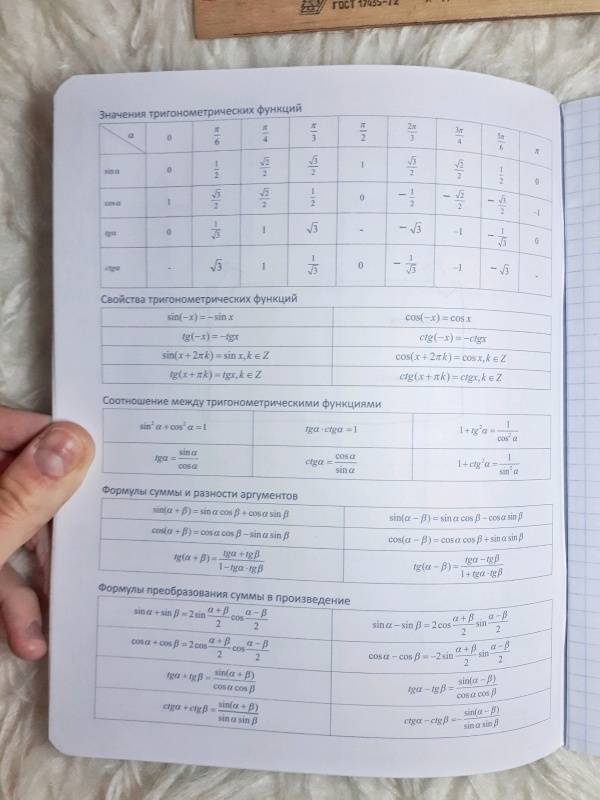 ГОСТ 17435-72
Значения тригонометрических функций
α 0 π/6 π/4 π/3 π/2 2π/3 3π/4 5π/6 π
sin α 0 1/2 √2/2 √3/2 1 √3/2 √2/2 1/2 0
cos α 1 √3/2 √2/2 1/2 0 −1/2 −√2/2 −√3/2 −1
tgα 0 1/√3 1 √3 - −√3 −1 −1/√3 0
ctgα - √3 1 1/√3 0 −1/√3 −1 −√3 -
Свойства тригонометрических функций
sin(−x) = −sin x cos(−x) = cos x
tg(−x) = −tgx ctg(−x) = −ctgx
sin(x + 2πk) = sin x, k ∈ Z cos(x + 2πk) = cos x, k ∈ Z
tg(x + πk) = tgx, k ∈ Z ctg(x + πk) = ctgx, k ∈ Z
Соотношение между тригонометрическими функциями
sin² α + cos² α = 1 tgα · ctgα = 1 1 + tg²α = 1/cos² α
tgα = sin α/cos α ctgα = cos α/sin α 1 + ctg²α = 1/sin² α
Формулы суммы и разности аргументов
sin(α + β) = sin α cos β + cos α sin β sin(α − β) = sin α cos β − cos α sin β
cos(α + β) = cos α cos β − sin α sin β cos(α − β) = cos α cos β + sin α sin β
tg(α + β) = (tgα + tgβ)/(1 − tgα · tgβ) tg(α − β) = (tgα − tgβ)/(1 + tgα · tgβ)
Формулы преобразования суммы в произведение
sin α + sin β = 2 sin (α + β)/2 cos (α − β)/2 sin α − sin β = 2 cos (α + β)/2 sin (α − β)/2
cos α + cos β = 2 cos (α + β)/2 cos (α − β)/2 cos α − cos β = −2 sin (α + β)/2 sin (α − β)/2
tgα + tgβ = sin(α + β)/cos α cos β tgα − tgβ = sin(α − β)/cos α cos β
ctgα + ctgβ = sin(α + β)/sin α sin β ctgα − ctgβ = −sin(α − β)/sin α sin β